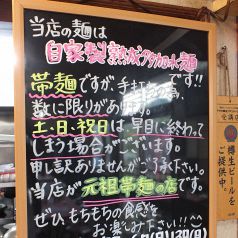 当店の麺は
自家製熟成多加水麺
です!!
帯麺ですが、手打ちの為、
数に限りがあります。
土・日・祝日は、早目に終わって
しまう場合がございます。
申し訳ありませんがご了承下さい。
当店が元祖帯麺の店です。
ぜひ、もちもちの食感を
お楽しみ下さい!!
樽生ビールを
ご提供中。